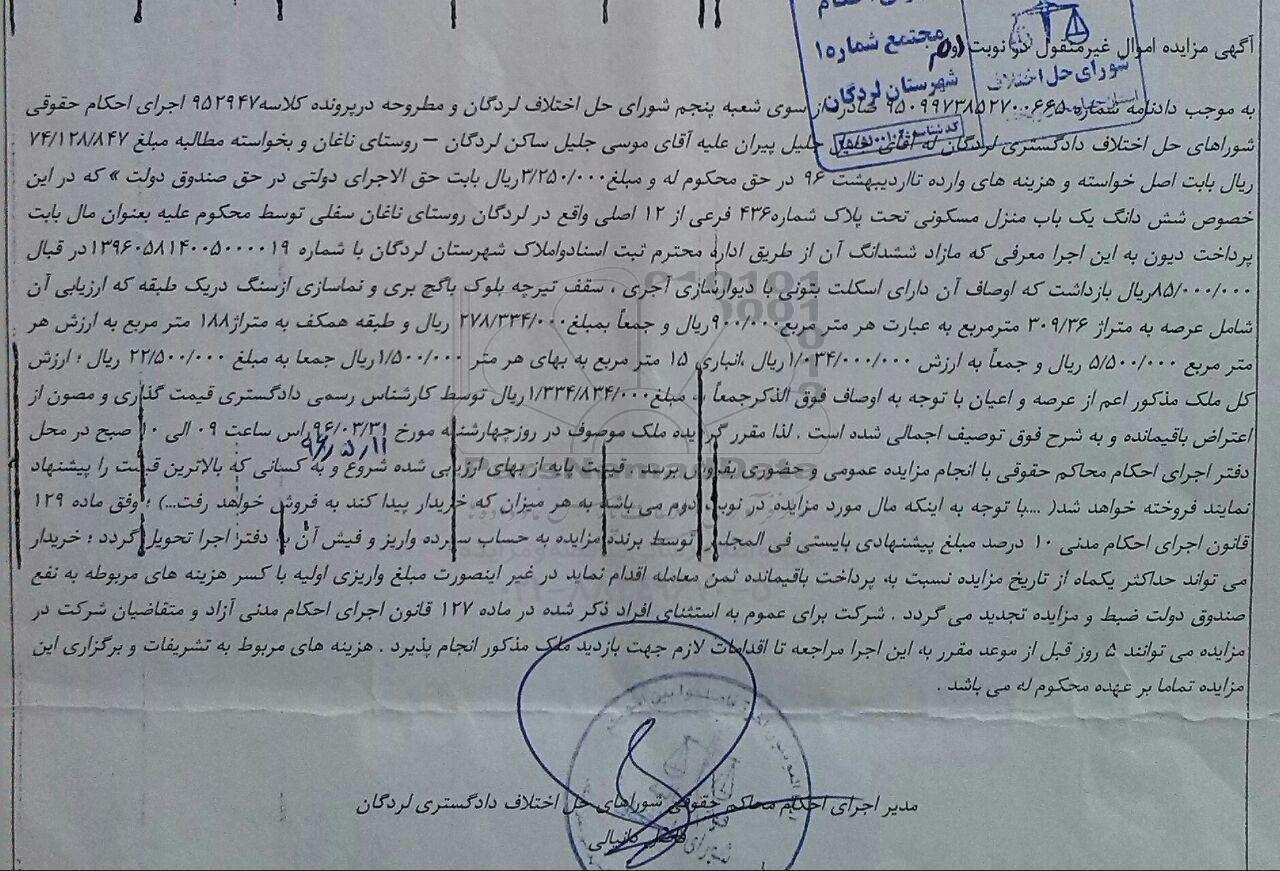 مجتمع شماره ۱
شهرستان لردگان
شورای حل اختلاف
آگهی مزایده اموال غیرمنقول در نوبت دوم
به موجب دادنامه شماره ۹۵۰۹۹۷۳۸۵۲۷۰۰۶۶۵ صادره از سوی شعبه پنجم شورای حل اختلاف لردگان و مطروحه درپرونده کلاسه ۹۵۲۹۴۷ اجرای احکام حقوقی
شوراهای حل اختلاف دادگستری لردگان له آقای جلیل پیران علیه آقای موسی جلیل ساکن لردگان – روستای ناغان و بخواسته مطالبه مبلغ ۷۴/۱۲۸/۸۴۷
ریال بابت اصل خواسته و هزینه های وارده تااردیبهشت ۹۶ در حق محکوم له و مبلغ ۳/۲۵۰/۰۰۰ریال بابت حق الاجرای دولتی در حق صندوق دولت » که در این
خصوص شش دانگ یک باب منزل مسکونی تحت پلاک شماره۴۳۶ فرعی از ۱۲ اصلی واقع در لردگان روستای ناغان سفلی توسط محکوم علیه بعنوان مال بابت
پرداخت دیون به این اجرا معرفی که مازاد ششدانگ آن از طریق اداره محترم ثبت اسنادواملاک شهرستان لردگان با شماره ۱۳۹۶۰۵۸۱۴۰۰۵۰۰۰۰۱۹در قبال
۸۵/۰۰۰/۰۰۰ریال بازداشت که اوصاف آن دارای اسکلت بتونی با دیوارسازی آجری ، سقف تیرچه بلوک باگچ بری و نماسازی ازسنگ دریک طبقه که ارزیابی آن
شامل عرصه به متراژ ۳۰۹/۳۶ مترمربع به عبارت هر متر مربع۹۰۰/۰۰۰ریال و جمعاً بمبلغ۲۷۸/۳۳۴/۰۰۰ ریال و طبقه همکف به متراژ۱۸۸ متر مربع به ارزش هر
متر مربع ۵/۵۰۰/۰۰۰ ریال و جمعاً به ارزش ۱/۰۳۴/۰۰۰/۰۰۰ریال ،انباری ۱۵ متر مربع به بهای هر متر ۱/۵۰۰/۰۰۰ریال جمعا به مبلغ ۲۲/۵۰۰/۰۰۰ ریال ؛ ارزش
کل ملک مذکور اعم از عرصه و اعیان با توجه به اوصاف فوق الذکرجمعاً به مبلغ۱/۳۳۴/۸۳۴/۰۰۰ریال توسط کارشناس رسمی دادگستری قیمت گذاری و مصون از
اعتراض باقیمانده و به شرح فوق توصیف اجمالی شده است . لذا مقرر گردیده ملک موصوف در روزچهارشنبه مورخ ۹۶/۰۳/۳۱راس ساعت ۰۹ الی ۱۰ صبح در محل
۹۶/۵/۱۱
دفتر اجرای احکام محاکم حقوقی با انجام مزایده عمومی و حضوری بفروش برسد . قیمت پایه از بهای ارزیابی شده شروع و به کسانی که بالاترین قیمت را پیشنهاد
نمایند فروخته خواهد شد( ...با توجه به اینکه مال مورد مزایده در نوبت دوم می باشد به هر میزان که خریدار پیدا کند به فروش خواهد رفت...) ؛ وفق ماده ۱۲۹
قانون اجرای احکام مدنی ۱۰ درصد مبلغ پیشنهادی بایستی فی المجلس توسط برنده مزایده به حساب سپرده واریز و فیش آن به دفتر اجرا تحویل گردد ؛ خریدار
می تواند حداکثر یکماه از تاریخ مزایده نسبت به پرداخت باقیمانده ثمن معامله اقدام نماید در غیر اینصورت مبلغ واریزی اولیه با کسر هزینه های مربوطه به نفع
صندوق دولت ضبط و مزایده تجدید می گردد . شرکت برای عموم به استثنای افراد ذکر شده در ماده ۱۲۷ قانون اجرای احکام مدنی آزاد و متقاضیان شرکت در
مزایده می توانند ۵ روز قبل از موعد مقرر به این اجرا مراجعه تا اقدامات لازم جهت بازدید ملک مذکور انجام پذیرد . هزینه های مربوط به تشریفات و برگزاری این
مزایده تماما بر عهده محکوم له می باشد .
مدیر اجرای احکام محاکم حقوقی شوراهای حل اختلاف دادگستری لردگان